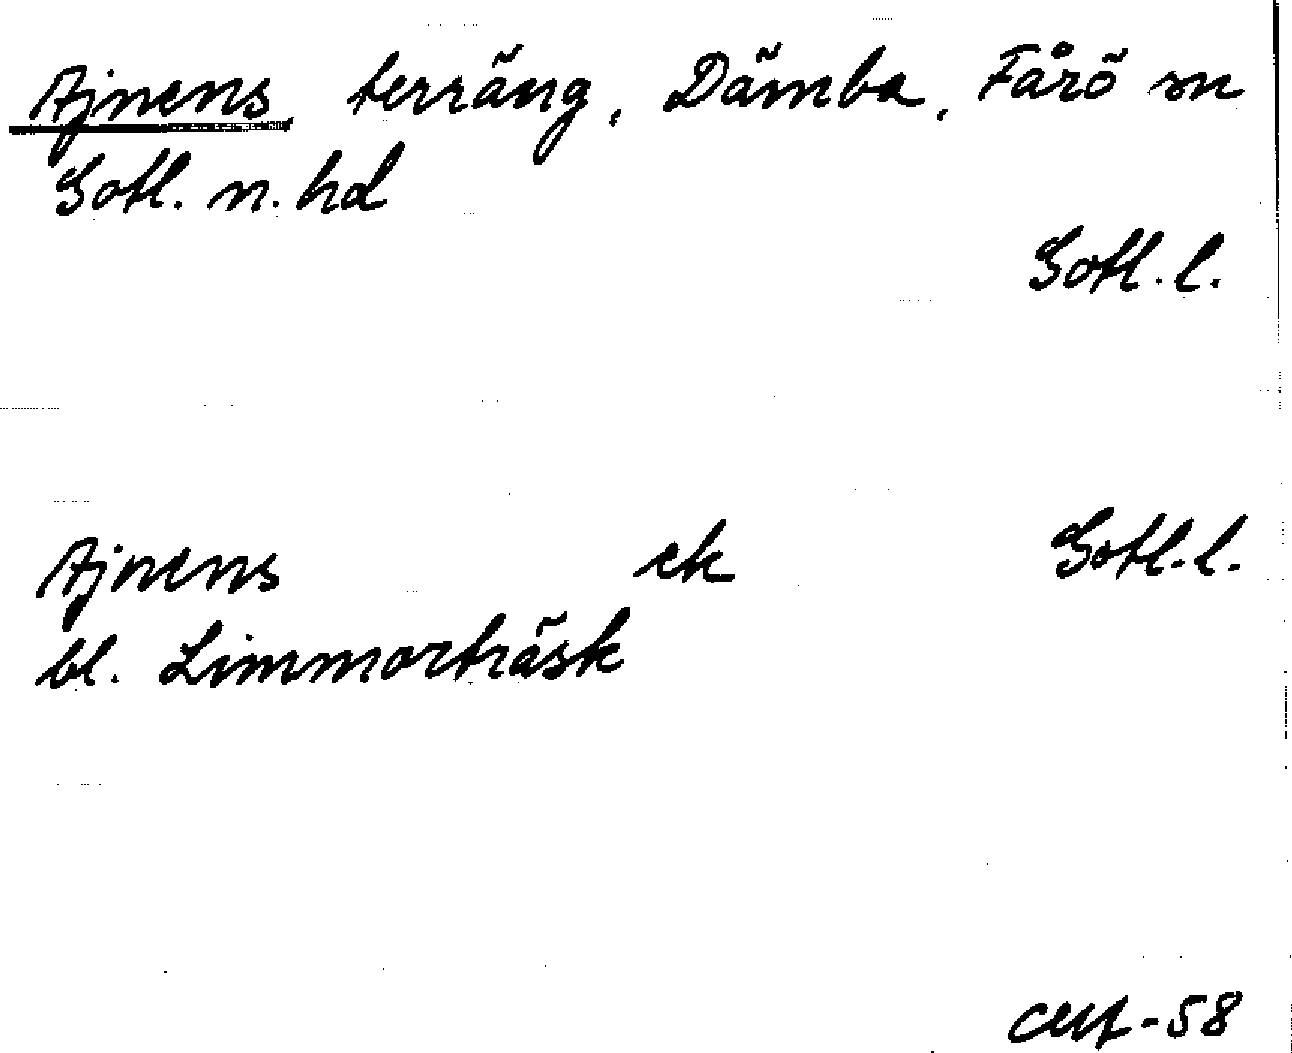 Ajnens terräng, Dämba, Fårö sn
Gotl. n. hd
Gotl. l.
Ajnens ek Gotl. l.
bl. Limmorträsk
-58